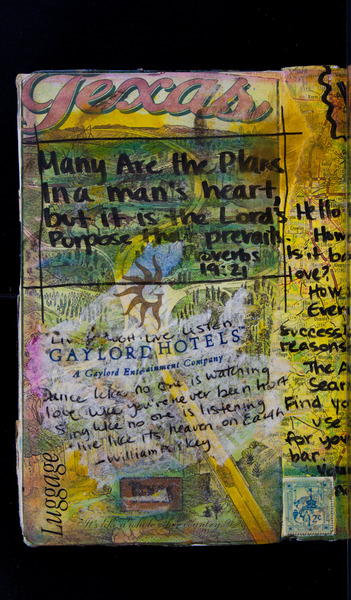 Texas
Many Are the Plans
In a man's heart,
but it is the Lord's
Purpose that prevails
Proverbs
19:21
Live listen
GAYLORD HOTELS™
A Gaylord Entertainment Company
Dance like no one is watching
love like you've never been hurt
Sing like no one is listening
live like it's heaven on Earth
-William
Luggage
It's like a whole other country.
Hello
How
is it
love?
Ever
success
reasons
The A
Sear
Find yo
use
for you
bar.
2¢